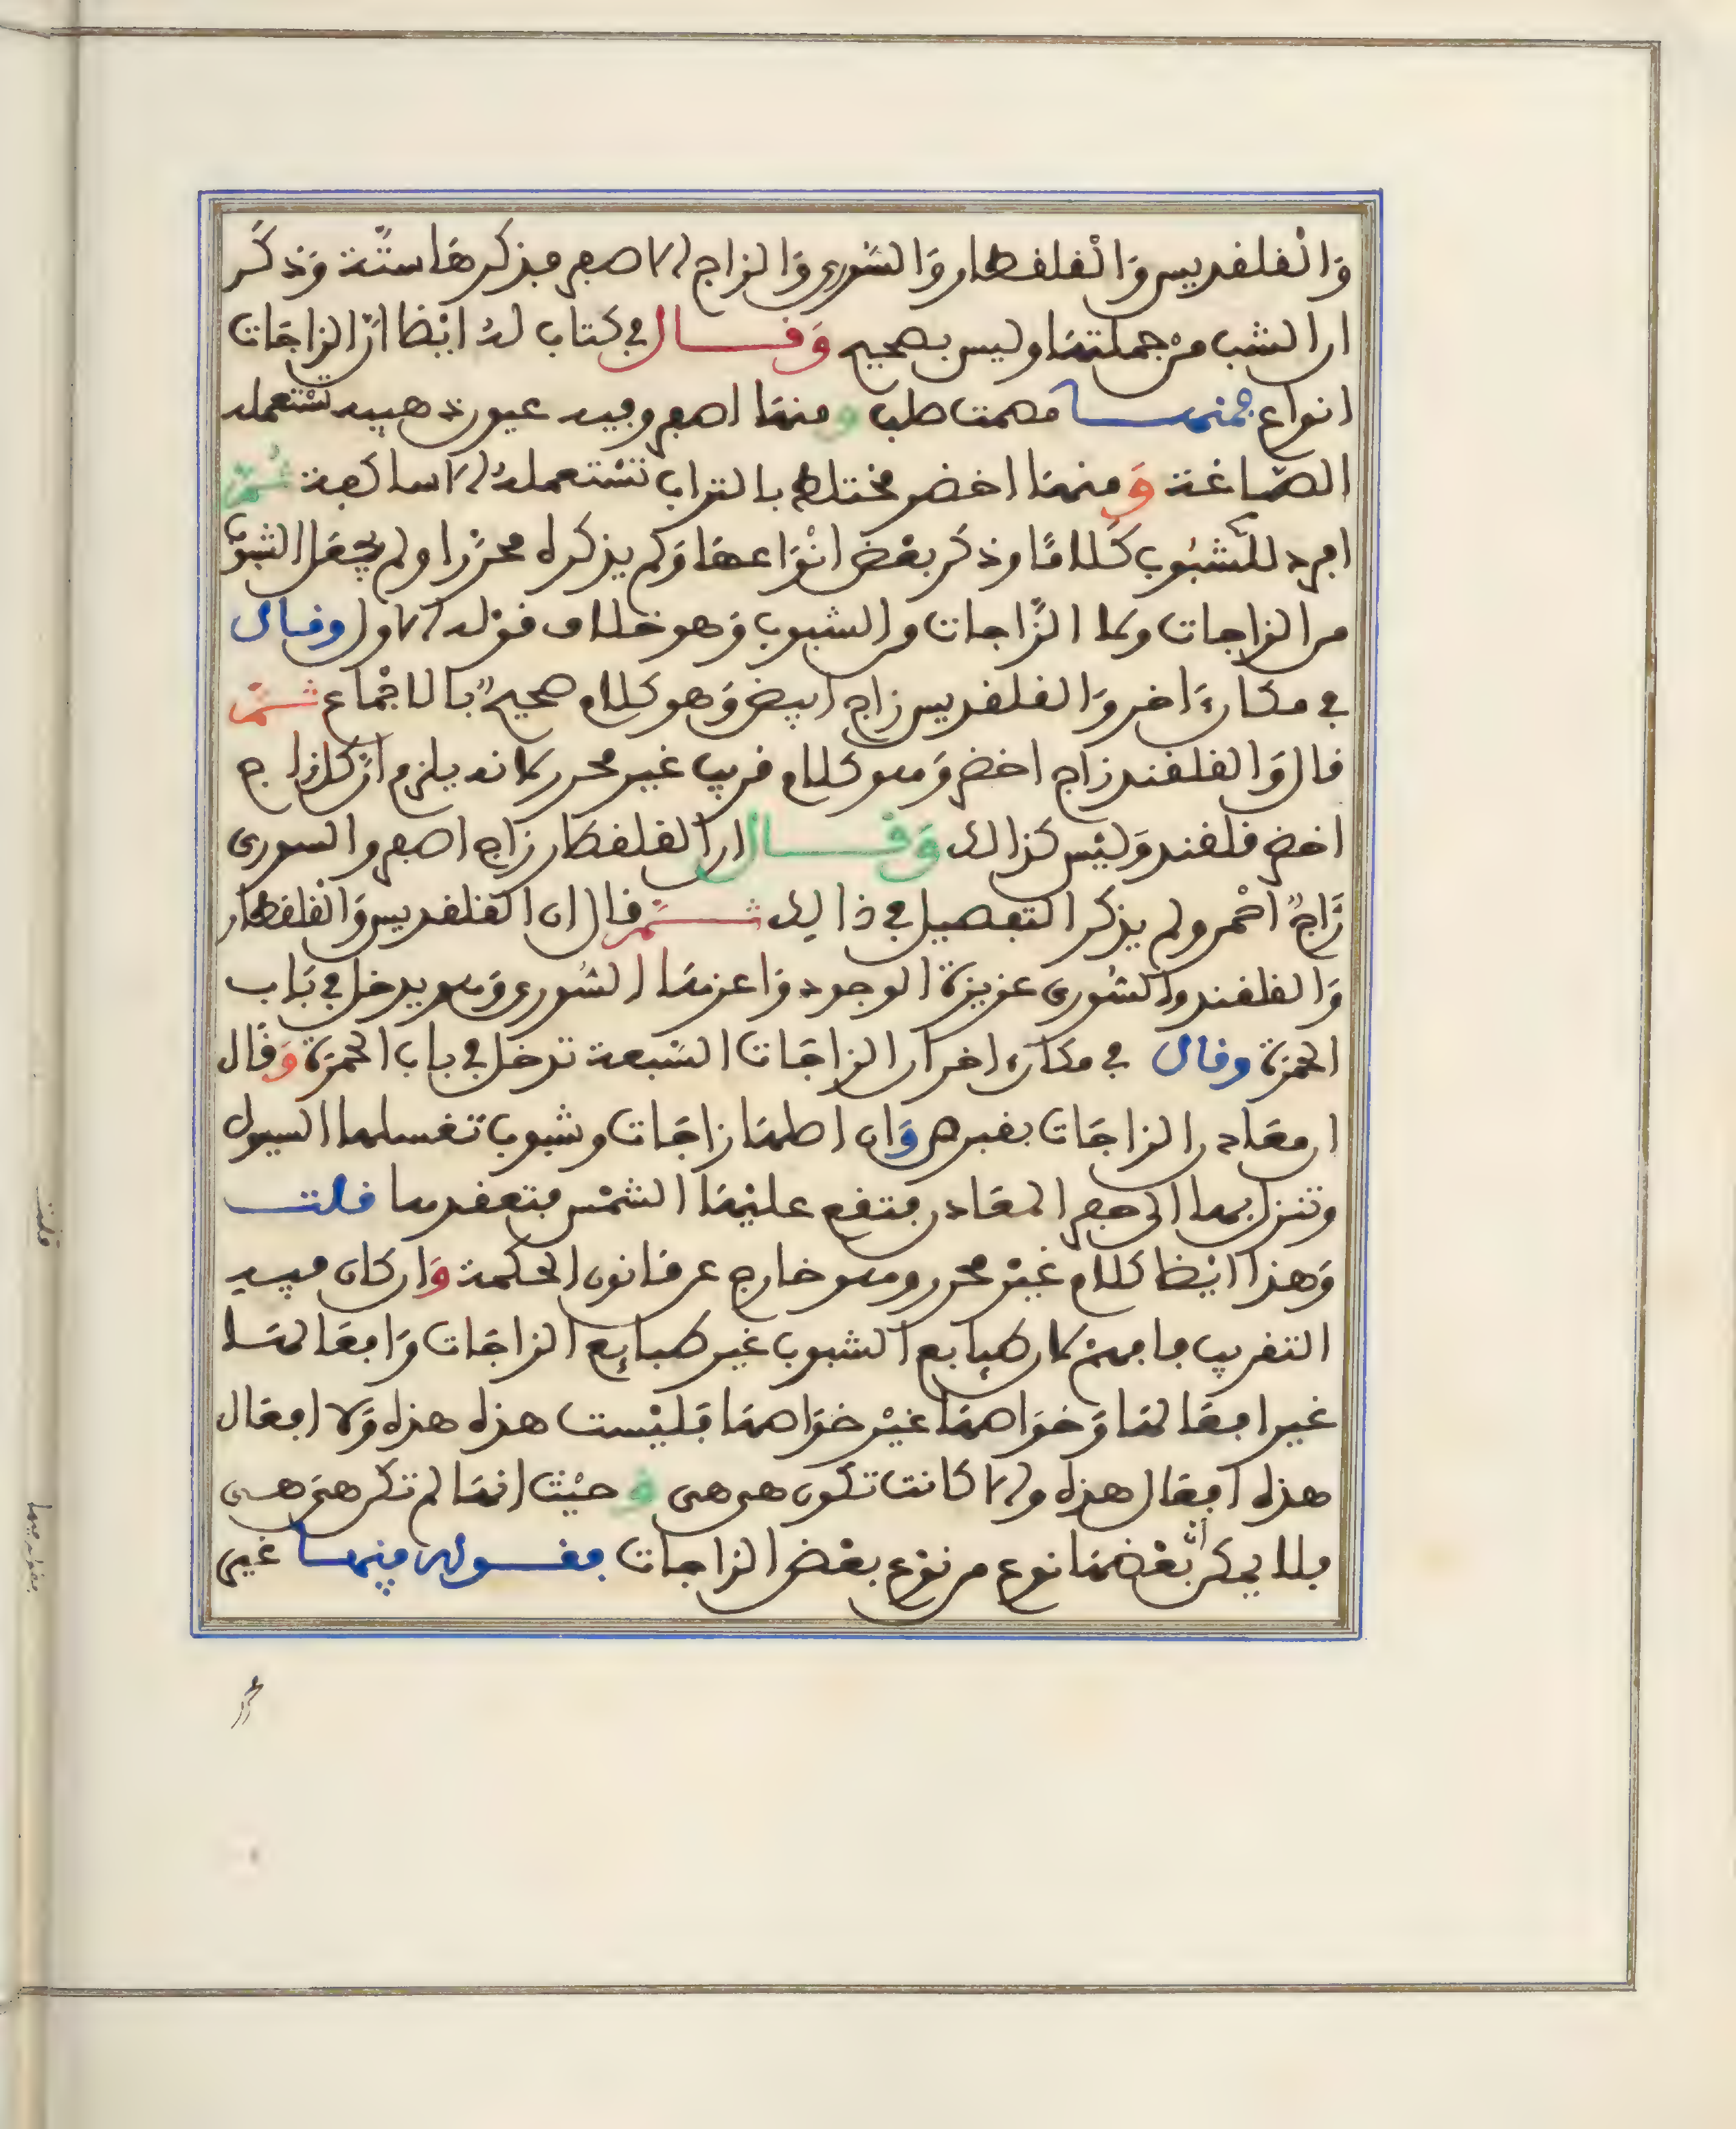 وَالْقلقديس وَالْقلقطار وَالسّوري وَالزاج الاصفر فذكرها ستّة وَذكر
ان الشب من جملتها وليس بصحيح وَقـــال في كتاب له ايْضا انّ الزاجَات
انواع فمنهـــا مصمت صلب و منهَا اصفر وفيه عيون ذهبيه تسْتعمله
الصّاغة وَ منهَا اخضر مختلط بالتراب تسْتعمله الاساكفة ثُمّ
افرد للشّبُوب كَلامًا وذكر بعْض انْوَاعهَا وَلم يذكره محرّرا ولم يجْعَل الشبوب
من الزاجات ولا الزّاجات من الشبوب وَهو خلاف قوْله الاول وقال
في مكان ءَاخر وَالقلقديس زاج ابيض وَهو كلام صحيح بالاجْماع ثـمّ
قال وَالقلقند زاج اخضر وَهو كلام قريب غير محرر لانه يلزم انّ كل زاج
اخضر قلقند وَليْس كذالك وَقـــال ان القلقطار زاج اصفر والسوري
زَاج احْمر ولم يذكر التفصيل في ذالك ثـــمّ قال ان القلقديس وَالْقلقطار
وَالقلقند والسُوري عزيزة الوجود وَاعزهَا السُوري وَهو يدخل في بَاب
الحمْرة وقال في مكان ءاخر ان الزاجَات السَبعة تدخل في باب الحمْرة وَقَال
ان معَادن الزاجَات بقبرص وَان اصلهَا زاجَات وشبوب تغسلها السيول
وتنزل بها الى حفر المعَادن فتقع عليْهَا الشمْس فتعقدها قلت
وَهذا ايْضا كلام غيْر محرر وهو خارج عن قانون الحكمة وَان كان فيه
التقريب ما فهن لان طبايع الشبوب غير طبايع الزاجَات وَافعَالهَا
غير افعَالهَا وَخوَاصهَا غيْر خوَاصهَا فليْست هذه هذه وَلا افعَال
هذه افعَال هذه والا كانت تكون هي هي و حيْث انهَا لم تكن هي هي
فلا يمكن أنّ بعْضهَا نوع من نوْع بعْض الزاجات فقـــوله منهـــا غير